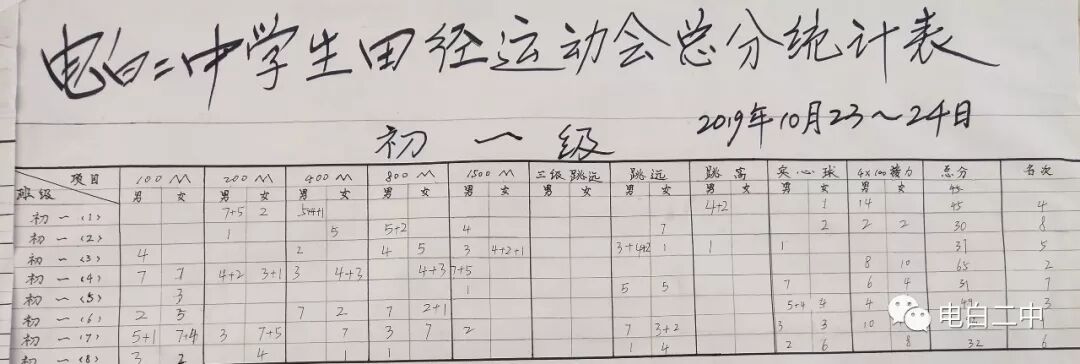 电白二中学生田径运动会总分统计表
初一级 2019年10月23~24日
项目 100M 200M 400M 800M 1500M 三级跳远 跳远 跳高 实心球 4×100接力 总分 名次
班级 男 女 男 女 男 女 男 女 男 女 男 女 男 女 男 女 男 女 男 女
初一(1) 7+5 2 5+4+1 4+2 1 14 45 4
初一(2) 1 5 5+2 4 7 2 2 2 30 8
初一(3) 4 2 4 5 3 4+2+1 3+4+2 1 1 1 37 5
初一(4) 7 7 4+2 3+1 3 4+3 4+3 7+5 8 10 65 2
初一(5) 3 1 5 5 7 6 4 31 7
初一(6) 2 5 7 2 7 2+1 5+4 4 4 3
初一(7) 5+1 7+4 3 7+5 7 3 7 2 7 3+2 3 3 10
初一(8) 3 2 4 1 1 1 4 2 6 8 32 6
电白二中